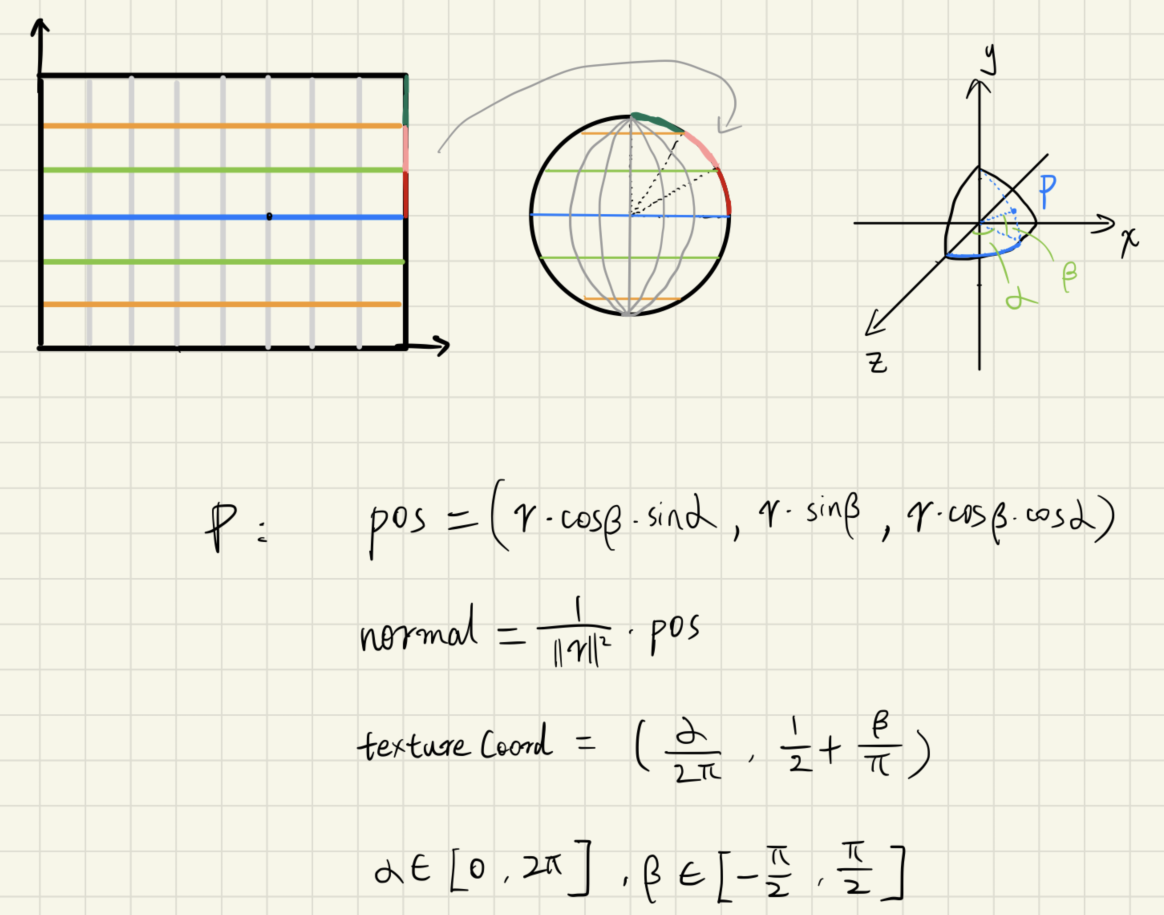 y
P
x
β
α
z
P: pos = (r·cosβ·sinα, r·sinβ, r·cosβ·cosα)
normal = 1/‖r‖² · pos
texture Coord = (α/2π, 1/2 + β/π)
α ∈ [0, 2π], β ∈ [-π/2, π/2]